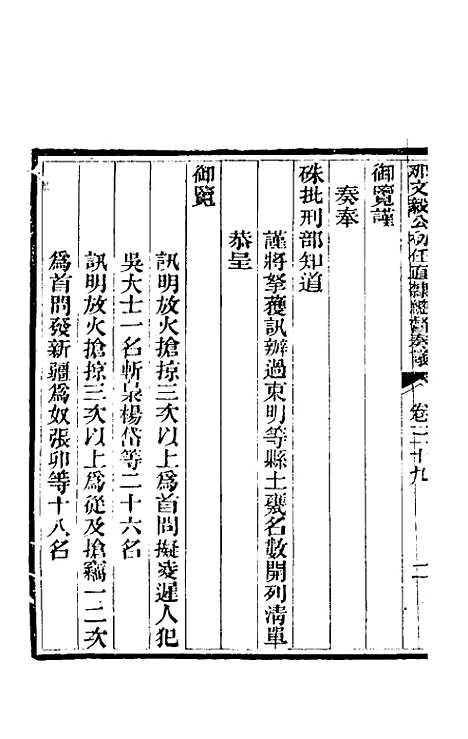 那文毅公初任直隸總督奏議 卷二十九 二
御覽謹
奏奉
硃批刑部知道
謹將拏獲訊辦過東明等縣土匪名數開列清單
恭呈
御覽
訊明放火搶掠三次以上爲首問擬凌遲人犯
吳大士一名斬梟楊岱等二十六名
訊明放火搶掠三次以上爲從及搶竊一二次
爲首問發新疆爲奴張卯等十八名